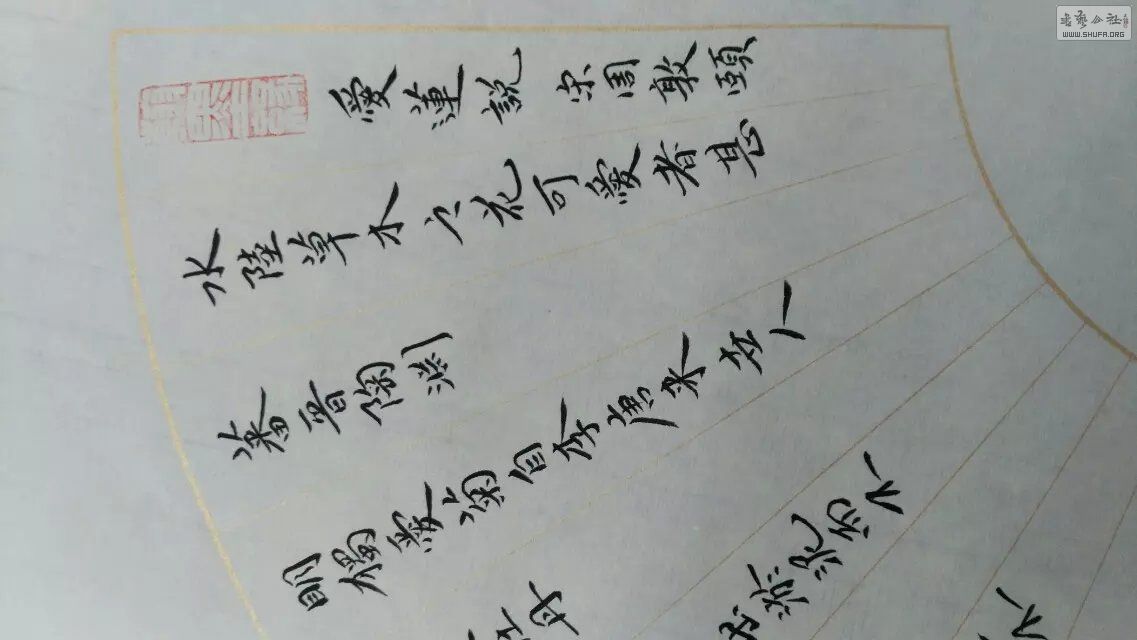 愛蓮說宋周敦頤
水陸草木之花可愛者甚
蕃晉陶渊
明獨愛菊自李唐来世人
丹
出淤泥而不
不
書藝公社
WWW.SHUFA.ORG